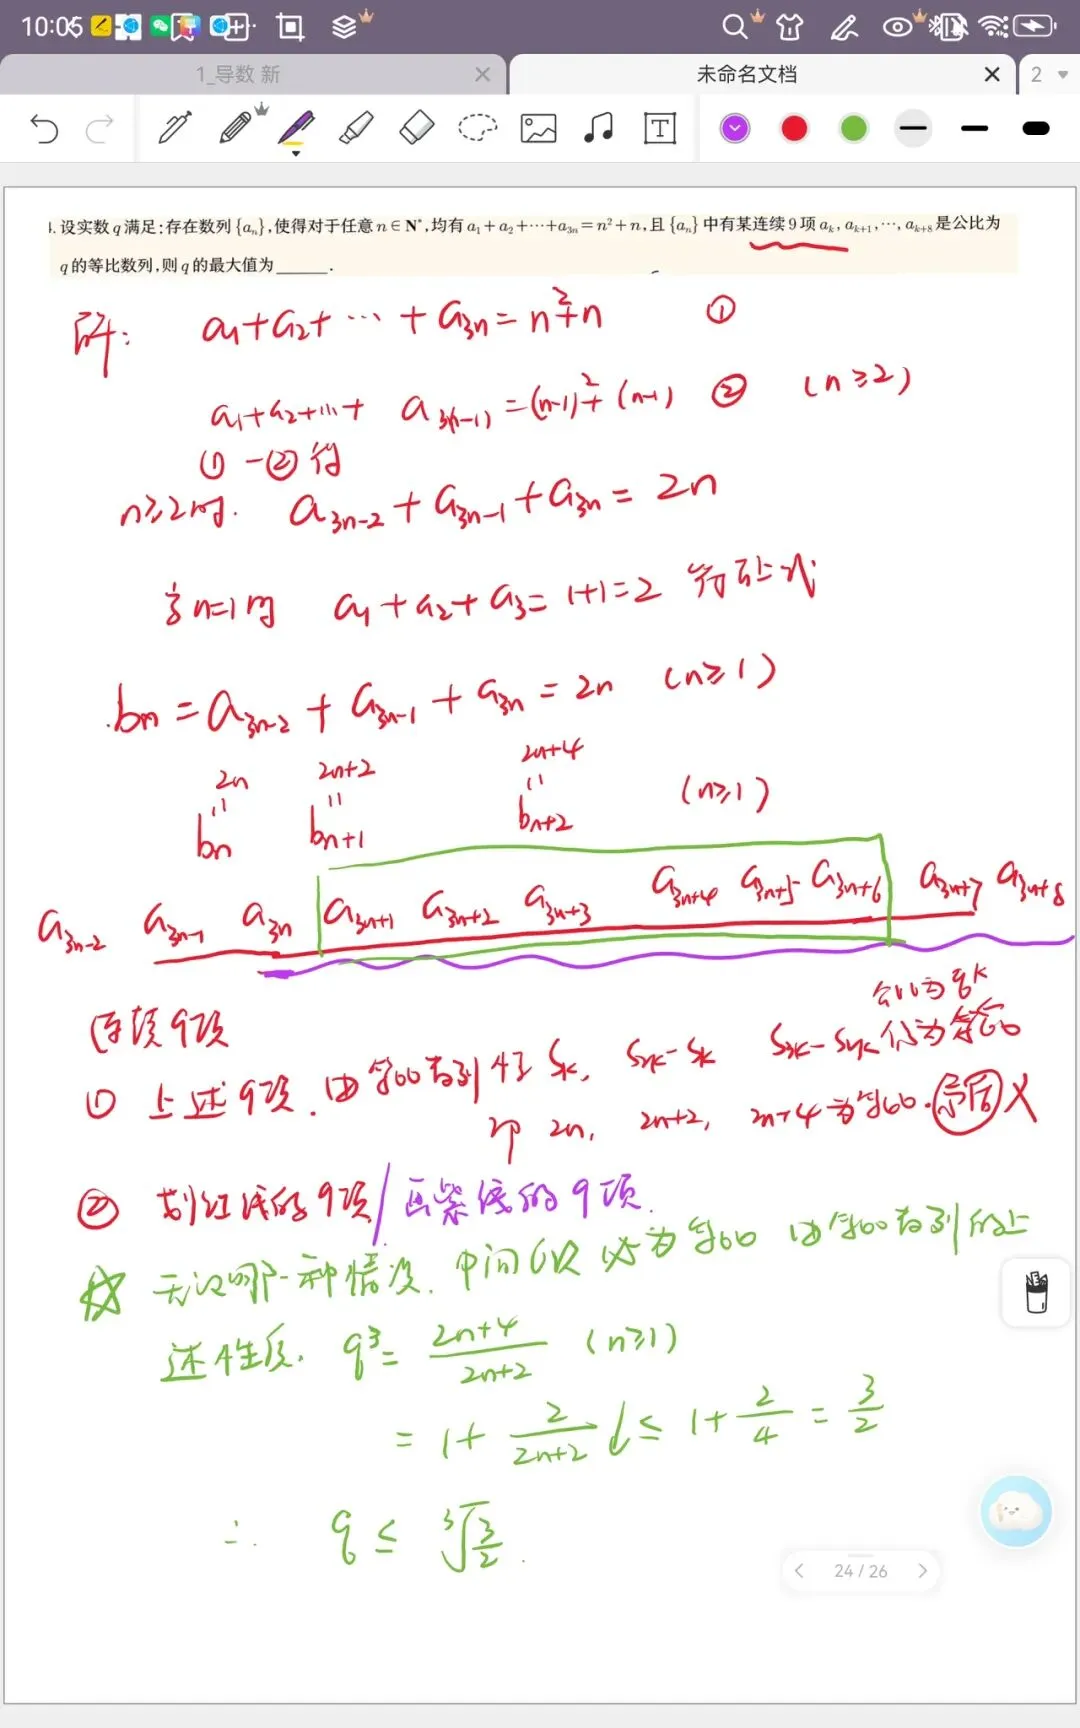 10:05
1_导数 新
未命名文档
2
4. 设实数q满足:存在数列{aₙ},使得对于任意n∈N*,均有a₁+a₂+⋯+a₃ₙ=n²+n,且{aₙ}中有某连续9项aₖ,aₖ₊₁,⋯,aₖ₊₈是公比为
q的等比数列,则q的最大值为______.
解: a₁+a₂+⋯+a₃ₙ=n²+n ①
a₁+a₂+⋯+a₃₍ₙ₋₁₎=(n-1)²+(n-1) ② (n≥2)
①-②得
n≥2时. a₃ₙ₋₂+a₃ₙ₋₁+a₃ₙ=2n
当n=1时 a₁+a₂+a₃=1+1=2 符合上式
bₙ=a₃ₙ₋₂+a₃ₙ₋₁+a₃ₙ=2n (n≥1)
2n 2n+2 2n+4
= = = (n≥1)
bₙ bₙ₊₁ bₙ₊₂
a₃ₙ₋₂ a₃ₙ₋₁ a₃ₙ a₃ₙ₊₁ a₃ₙ₊₂ a₃ₙ₊₃ a₃ₙ₊₄ a₃ₙ₊₅ a₃ₙ₊₆ a₃ₙ₊₇ a₃ₙ₊₈
公比为qᵏ
连续9项
① 上述9项.由等比数列性 Sₖ, S₂ₖ-Sₖ S₃ₖ-S₂ₖ 仍为等比
即 2n, 2n+2, 2n+4为等比.矛盾 X
② 划红线的9项/画紫线的9项.
☆ 无论哪一种情况.中间6项必为等比 由等比数列的上
述性质. q³=(2n+4)/(2n+2) (n≥1)
=1+2/(2n+2) ↓≤1+2/4=3/2
∴ q≤³√(3/2).
24/26